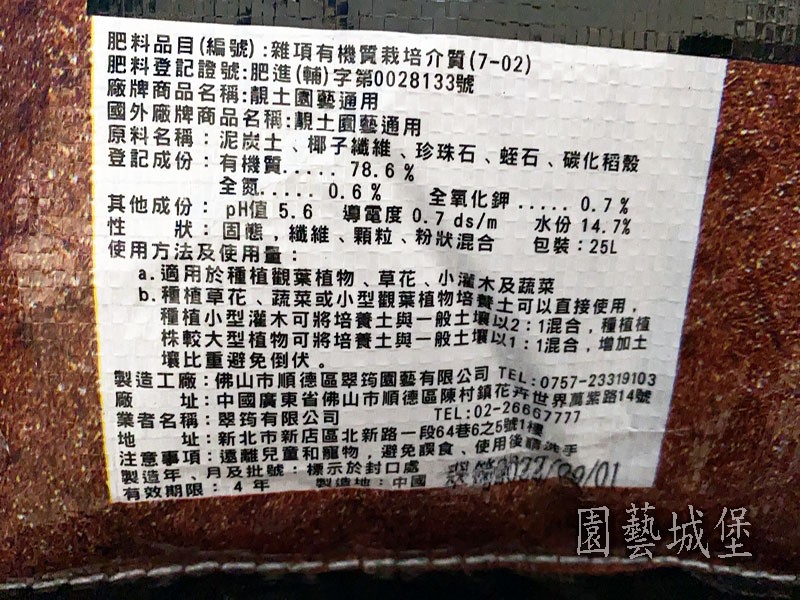 肥料品目(編號):雜項有機質栽培介質(7-02)
肥料登記證號:肥進(輔)字第0028133號
廠牌商品名稱:靚土園藝通用
國外廠牌商品名稱:靚土園藝通用
原料名稱:泥炭土、椰子纖維、珍珠石、蛭石、碳化稻殼
登記成份:有機質..... 78.6%
全氮..... 0.6% 全氧化鉀..... 0.7%
其他成份: pH值 5.6 導電度 0.7 ds/m 水份 14.7%
性 狀:固態,纖維、顆粒、粉狀混合 包裝:25L
使用方法及使用量:
a.適用於種植觀葉植物、草花、小灌木及蔬菜
b.種植草花、蔬菜或小型觀葉植物培養土可以直接使用,
種植小型灌木可將培養土與一般土壤以2:1混合,種植植
株較大型植物可將培養土與一般土壤以1:1混合,增加土
壤比重避免倒伏。
製造工廠:佛山市順德區翠筠園藝有限公司 TEL:0757-23319103
廠 址:中國廣東省佛山市順德區陳村鎮花卉世界萬紫路14號
業者名稱:翠筠有限公司 TEL:02-26667777
地 址:新北市新店區北新路一段64巷6之5號1樓
注意事項:遠離兒童和寵物,避免誤食、使用後請洗手
製造年、月及批號:標示於封口處
有效期限:4年 製造地:中國 翠筠2022/09/01
園藝城堡